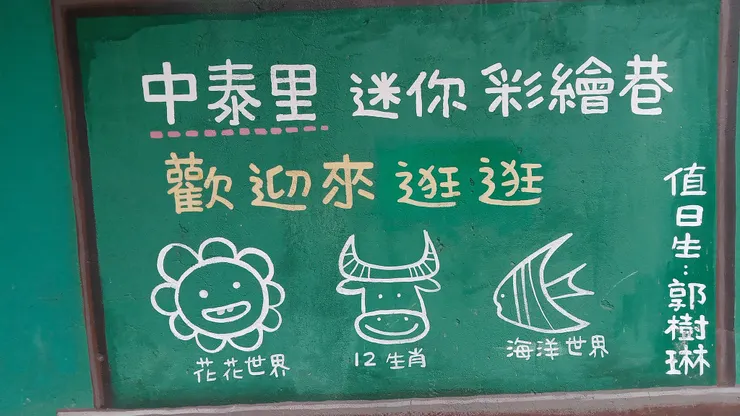 中泰里 迷你彩繪巷
歡迎來逛逛
值日生:郭樹琳
花花世界
12生肖
海洋世界